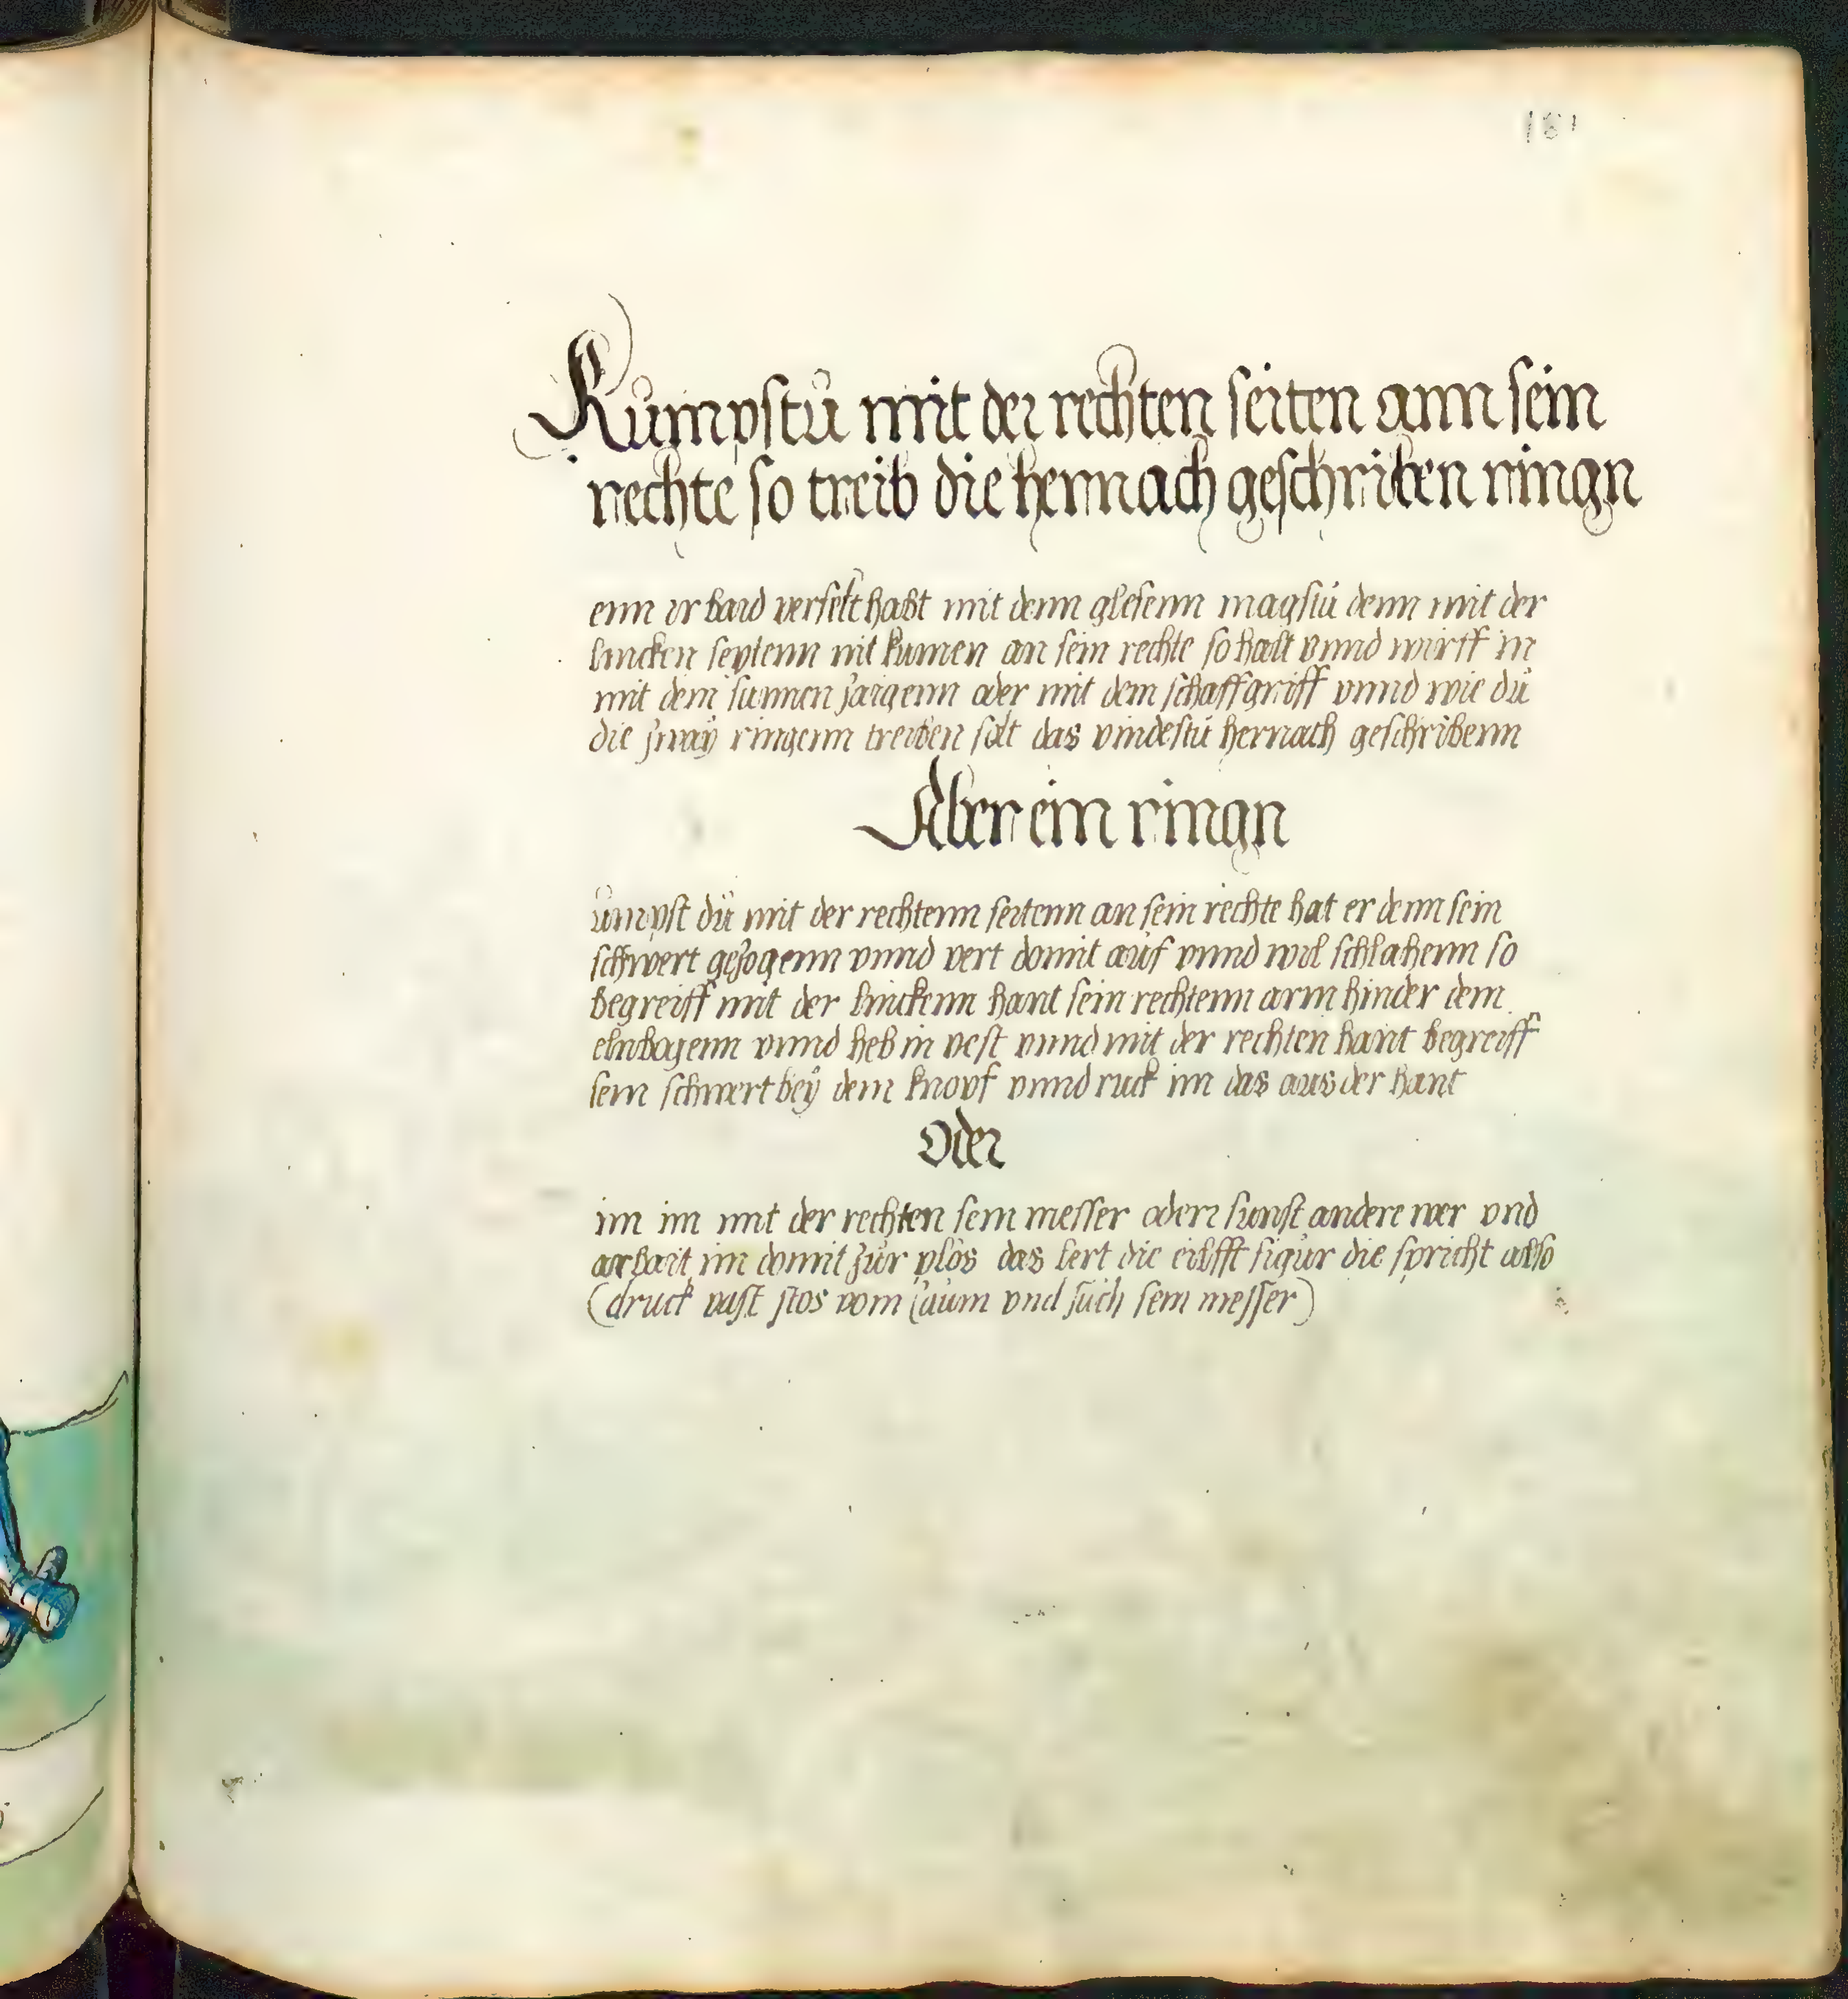 181
Kumpstu mit der rechten seiten ann sein
rechte so treib die hernnach geschriben ringn
enn ir baid verfelt habt mit denn glefenn magstu denn mit der
linckenn seytenn nit kumen an sein rechte so halt vnnd wirff in
mit dem sunnen zaigenn oder mit dem schaffgriff vnnd wie du
die zway ringenn treiben solt das vindestu hernach geschribenn
Aber ein ringn
umpst du mit der rechtenn seitenn an sein rechte hat er denn sein
schwert gezogenn vnnd vert domit auf vnnd wil schlahenn so
begreiff mit der linckenn hant sein rechtenn arm hinder dem
elnbogenn vnnd heb in vest vnnd mit der rechten hant begreiff
sein schwert bey dem knopf vnnd ruck im das aus der hant
Oder
im im mit der rechten sein messer odern sunst andere wer vnd
arbait im domit zur plos das lert die eilfft figur die spricht also
(druck vast stos vom zaum vnd such sein messer)